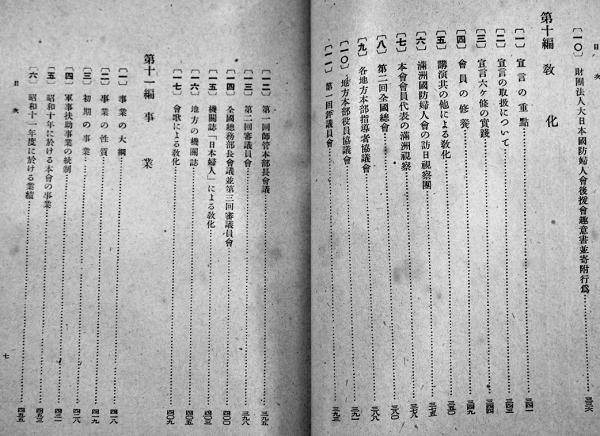 目次
〔一〇〕 財團法人大日本國防婦人會後援會趣意書並寄附行爲………三三六
第十編 教化
〔一〕 宣言の重點………三四一
〔二〕 宣言の取扱について………三四三
〔三〕 宣言六ケ條の實踐………三四四
〔四〕 會員の修養………三四九
〔五〕 講演其の他による敎化………三五〇
〔六〕 滿洲國防婦人會の訪日視察團
〔七〕 本會會員代表の滿洲視察………三八〇
〔八〕 第二回全國總會………三八八
〔九〕 各地方本部指導者協議會
〔一〇〕 地方本部役員協議會
〔一一〕 第一回評議員會
〔一二〕 第一回師管本部長會議
〔一三〕 第二回審議員會………三九八
〔一四〕 全國總務部長會議並第三回審議員會………四〇〇
〔一五〕 機關誌「日本婦人」による敎化………四〇三
〔一六〕 地方の機關誌………四〇五
〔一七〕 會歌による敎化………四〇九
第十一編 事業
〔一〕 事業の大綱………四一八
〔二〕 事業の性質………四一九
〔三〕 初期の事業………四二八
〔四〕 軍事扶助事業の統制
〔五〕 昭和十年に於ける本會の事業
〔六〕 昭和十一年度に於ける業績………四九五
目次
七